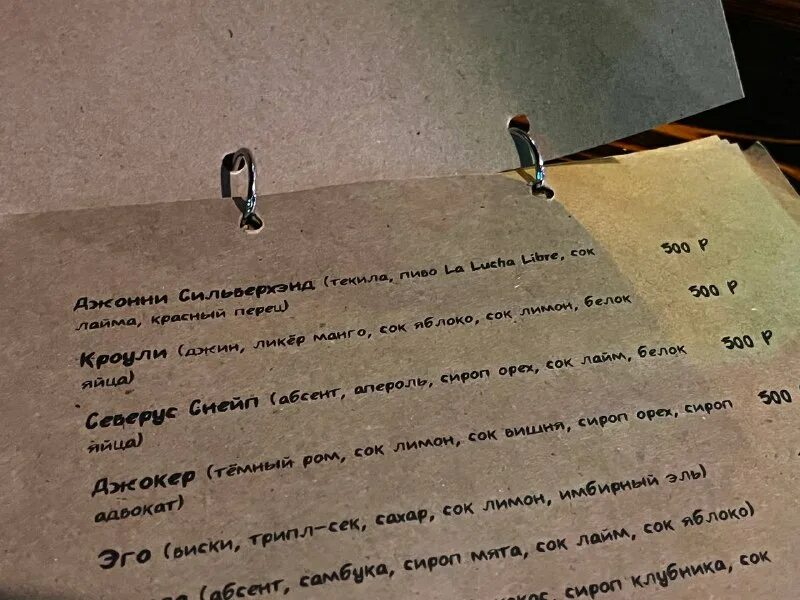 Джонни Сильверхэнд (текила, пиво La Lucha Libre, сок 500 Р
лайма, красный перец)
Кроули (джин, ликёр манго, сок яблоко, сок лимон, белок 500 Р
яйца)
Северус Снейп (абсент, апероль, сироп орех, сок лайм, белок 500 Р
яйца)
Джокер (тёмный ром, сок лимон, сок вишня, сироп орех, сироп 500
адвокат)
Эго (виски, трипл-сек, сахар, сок лимон, имбирный эль)
(абсент, самбука, сироп мята, сок лайм, сок яблоко)
сироп клубника, сок